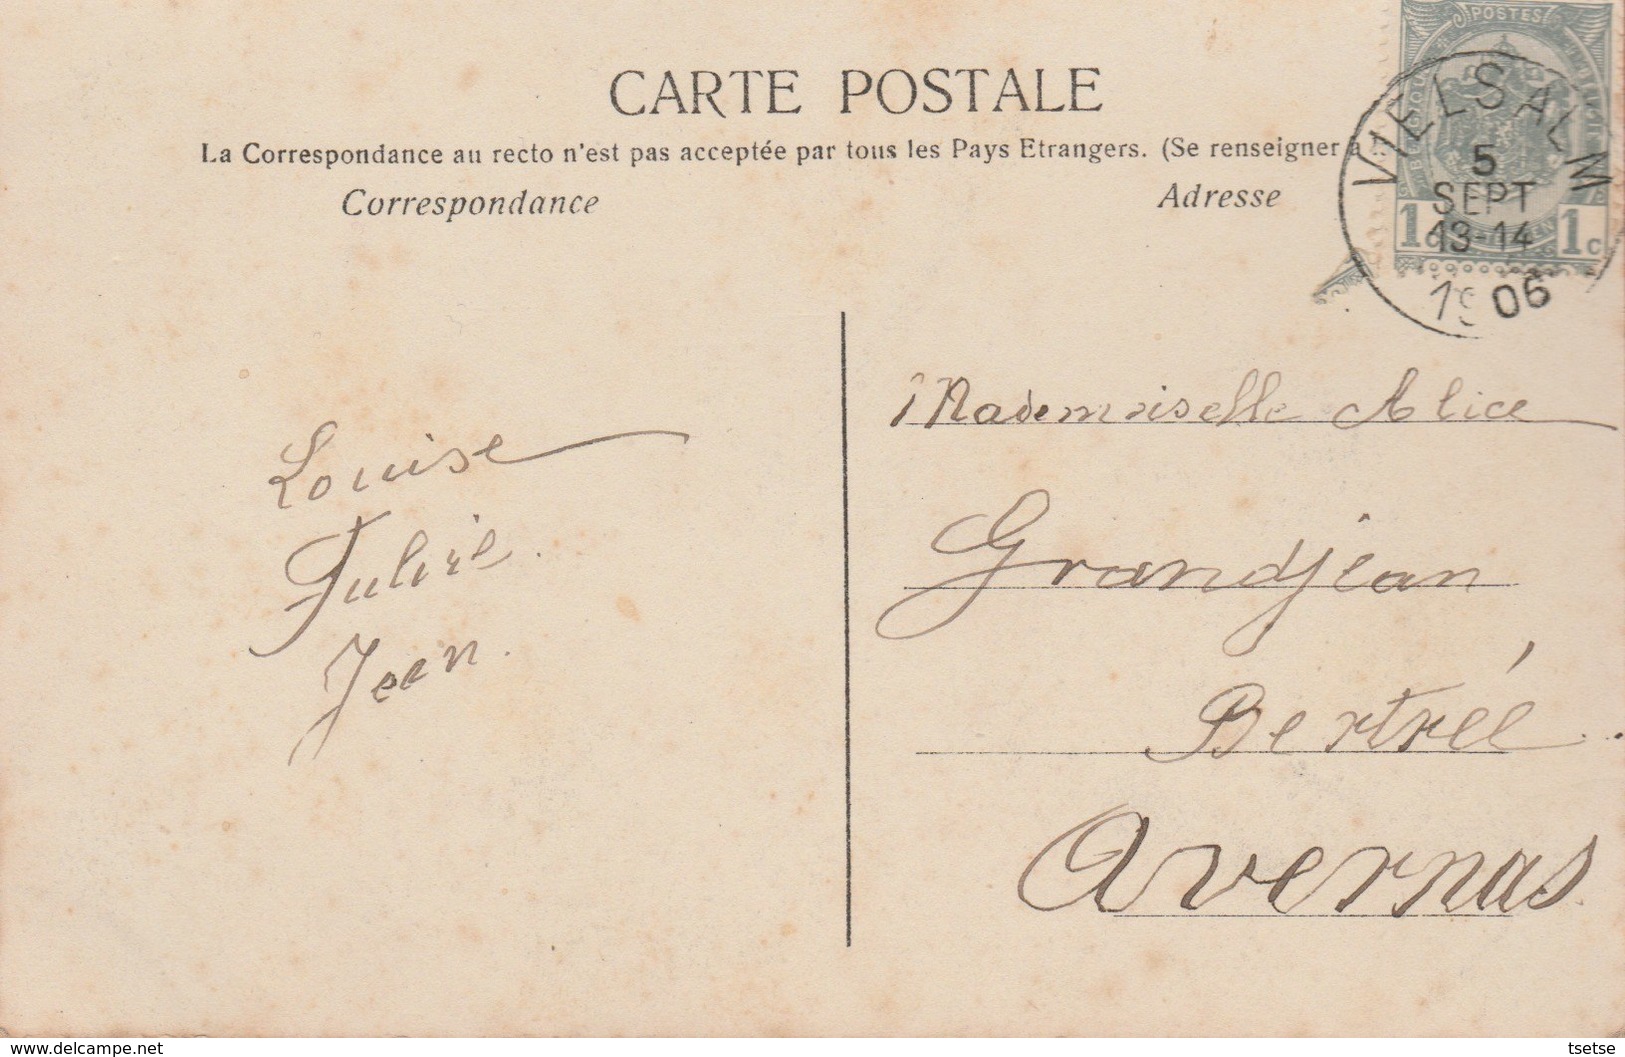 CARTE POSTALE
La Correspondance au recto n'est pas acceptée par tous les Pays Etrangers. (Se renseigner à
Correspondance
Adresse
POSTES
1c 1c
VIELSALM
5
SEPT
13-14
1906
Louise
Julie.
Jean.
Mademoiselle Alice
Grandjean
Bertrée.
Avernas
www.delcampe.net
tsetse